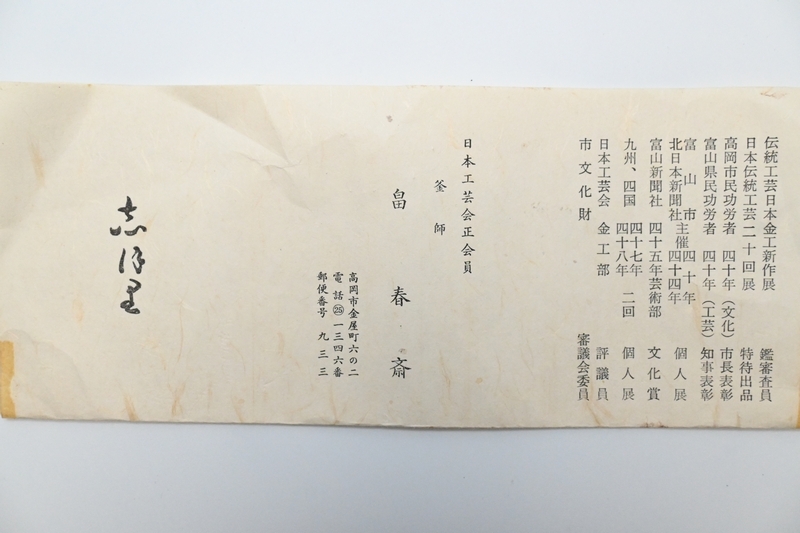 伝統工芸日本金工新作展　鑑審査員
日本伝統工芸二十回展　特待出品
高岡市民功労者　四十年（文化）市長表彰
富山県民功労者　四十年（工芸）知事表彰
富山市　四十年
北日本新聞社主催四十四年　個人展
富山新聞社　四十五年芸術部　文化賞
九州、四国　四十七年 四十八年　二回　個人展
日本工芸会　金工部　評議員
市文化財　審議会委員
日本工芸会正会員
釜師
畠春斎
高岡市金屋町六の二
電話㉕一三四六番
郵便番号　九三三